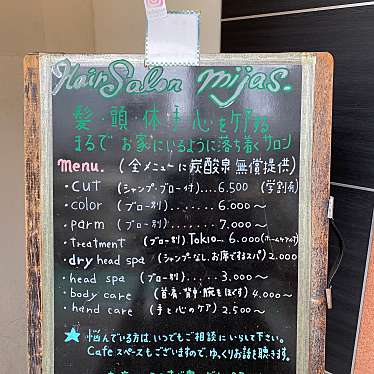 Hair Salon mijas.
髪・頭・体・手・心をケアする
まるでお家にいるように落ち着くサロン
menu. (全メニューに炭酸泉無償提供)
・cut (シャンプー・ブロー付)....6.500 (学割有)
・color (ブロー別).......6.000〜
・parm (ブロー別).......7.000〜
・treatment (ブロー別) Tokio...6.000(ホームケア付)
・dry head spa (シャンプーなし、お席でするスパ)2.000
・head spa (ブロー別)....3.000〜
・body care (首肩・背中・腕をほぐす) 4.000〜
・hand care (手と心のケア) 2.500〜
★悩んでいる方は、いつでもご相談にいらして下さい。
Cafe スペースもございますので、ゆっくりお話を聴きます。